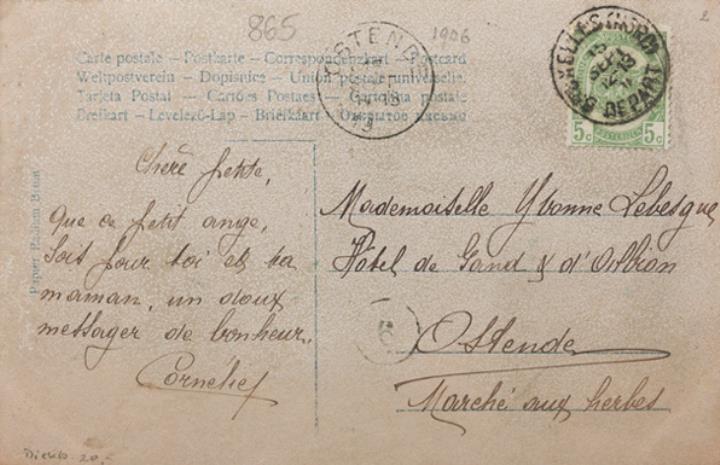 865
1906
2
Carte postale – Postkarte – Correspondenzkart – Postcard
Weltpostverein – Dopisnice – Union postale universelle.
Tarjeta Postal – Cartões Postaes – Cartolina postale
Brefkart – Levelező-Lap – Briefkaart – Открытое письмо
OSTENDE
BRUXELLES (NORD)
15 SEPT
DEPART
5c 5c
Chère petite,
Que ce petit ange,
Soit pour toi et ta
maman, un doux
messager de bonheur.
Mademoiselle Yvonne Lebesgue
Hôtel de Gand & d'Albion
Ostende
Marché aux herbes
6